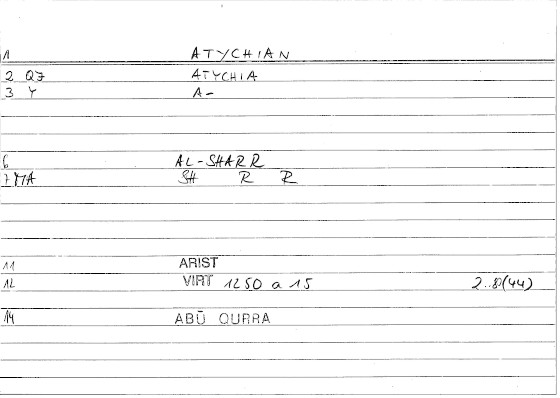 1 ATYCHIAN
2 QZ ATYCHIA
3 Y A-
6 AL-SHARR
7 MA SH R R
11 ARIST
12 VIRT 1250 a 15 2..8(44)
14 ABŪ QURRA